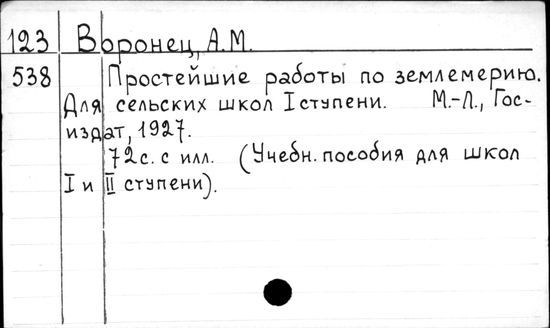 123 Воронец, А.М.
538 Простейшие работы по землемерию.
Для сельских школ I ступени. М.-Л., Гос-
издат, 1927.
72с. с илл. (Учебн. пособия для школ
I и II ступени).